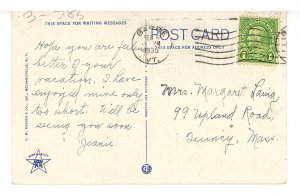 THIS SPACE FOR WRITING MESSAGES
POST CARD
THIS SPACE FOR ADDRESS ONLY
Hope you are
better of your
vacation. I have
enjoyed mine only
too short. Will be
seeing you soon
Jeanie
VT.
Mrs. Margaret Laing
99 Upland Road,
Quincy, Mass.